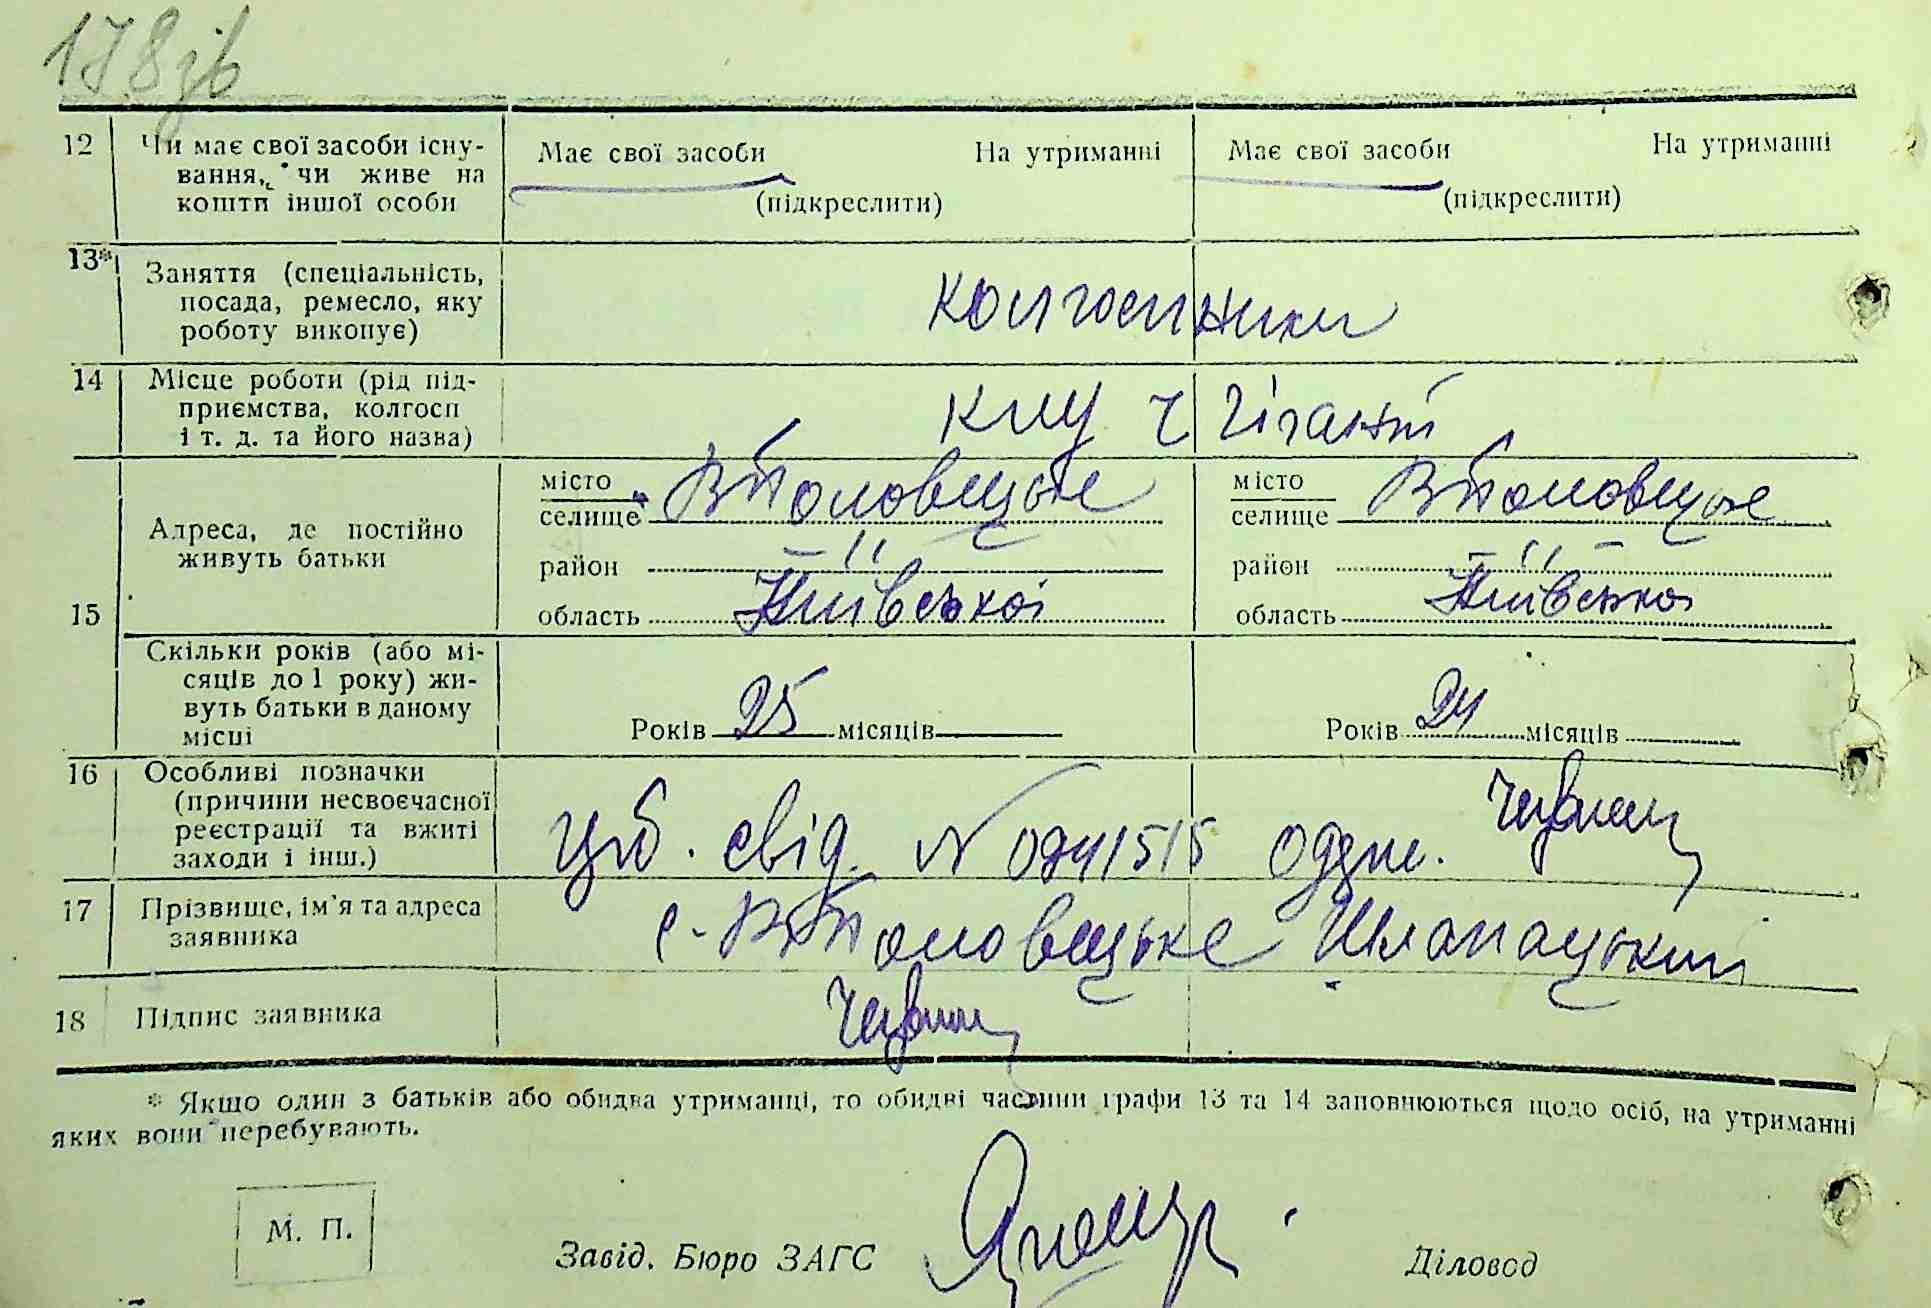 178зв
12 Чи має свої засоби існу- Має свої засоби На утриманні Має свої засоби На утриманні
вання, чи живе на
кошти іншої особи (підкреслити) (підкреслити)
13* Заняття (спеціальність,
посада, ремесло, яку колгоспники
роботу виконує)
14 Місце роботи (рід під-
приємства, колгосп Гігант
і т. д. та його назва)
місто місто
селище ВПоловецьке селище ВПоловецьке
Адреса, де постійно
живуть батьки район — " — район — " —
15 область Київської область Київської
Скільки років (або мі-
сяців до 1 року) жи-
вуть батьки в даному
місці Років 25 місяців Років 24 місяців
16 Особливі позначки
(причини несвоєчасної
реєстрації та вжиті свід. N 0241515
заходи і інш.)
17 Прізвище, ім'я та адреса с. ВПоловецьке Шлапацький
заявника
18 Підпис заявника
* Якщо один з батьків або обидва утриманці, то обидві частини графи 13 та 14 заповнюються щодо осіб, на утриманні
яких вони перебувають.
М. П.
Завід. Бюро ЗАГС Діловод